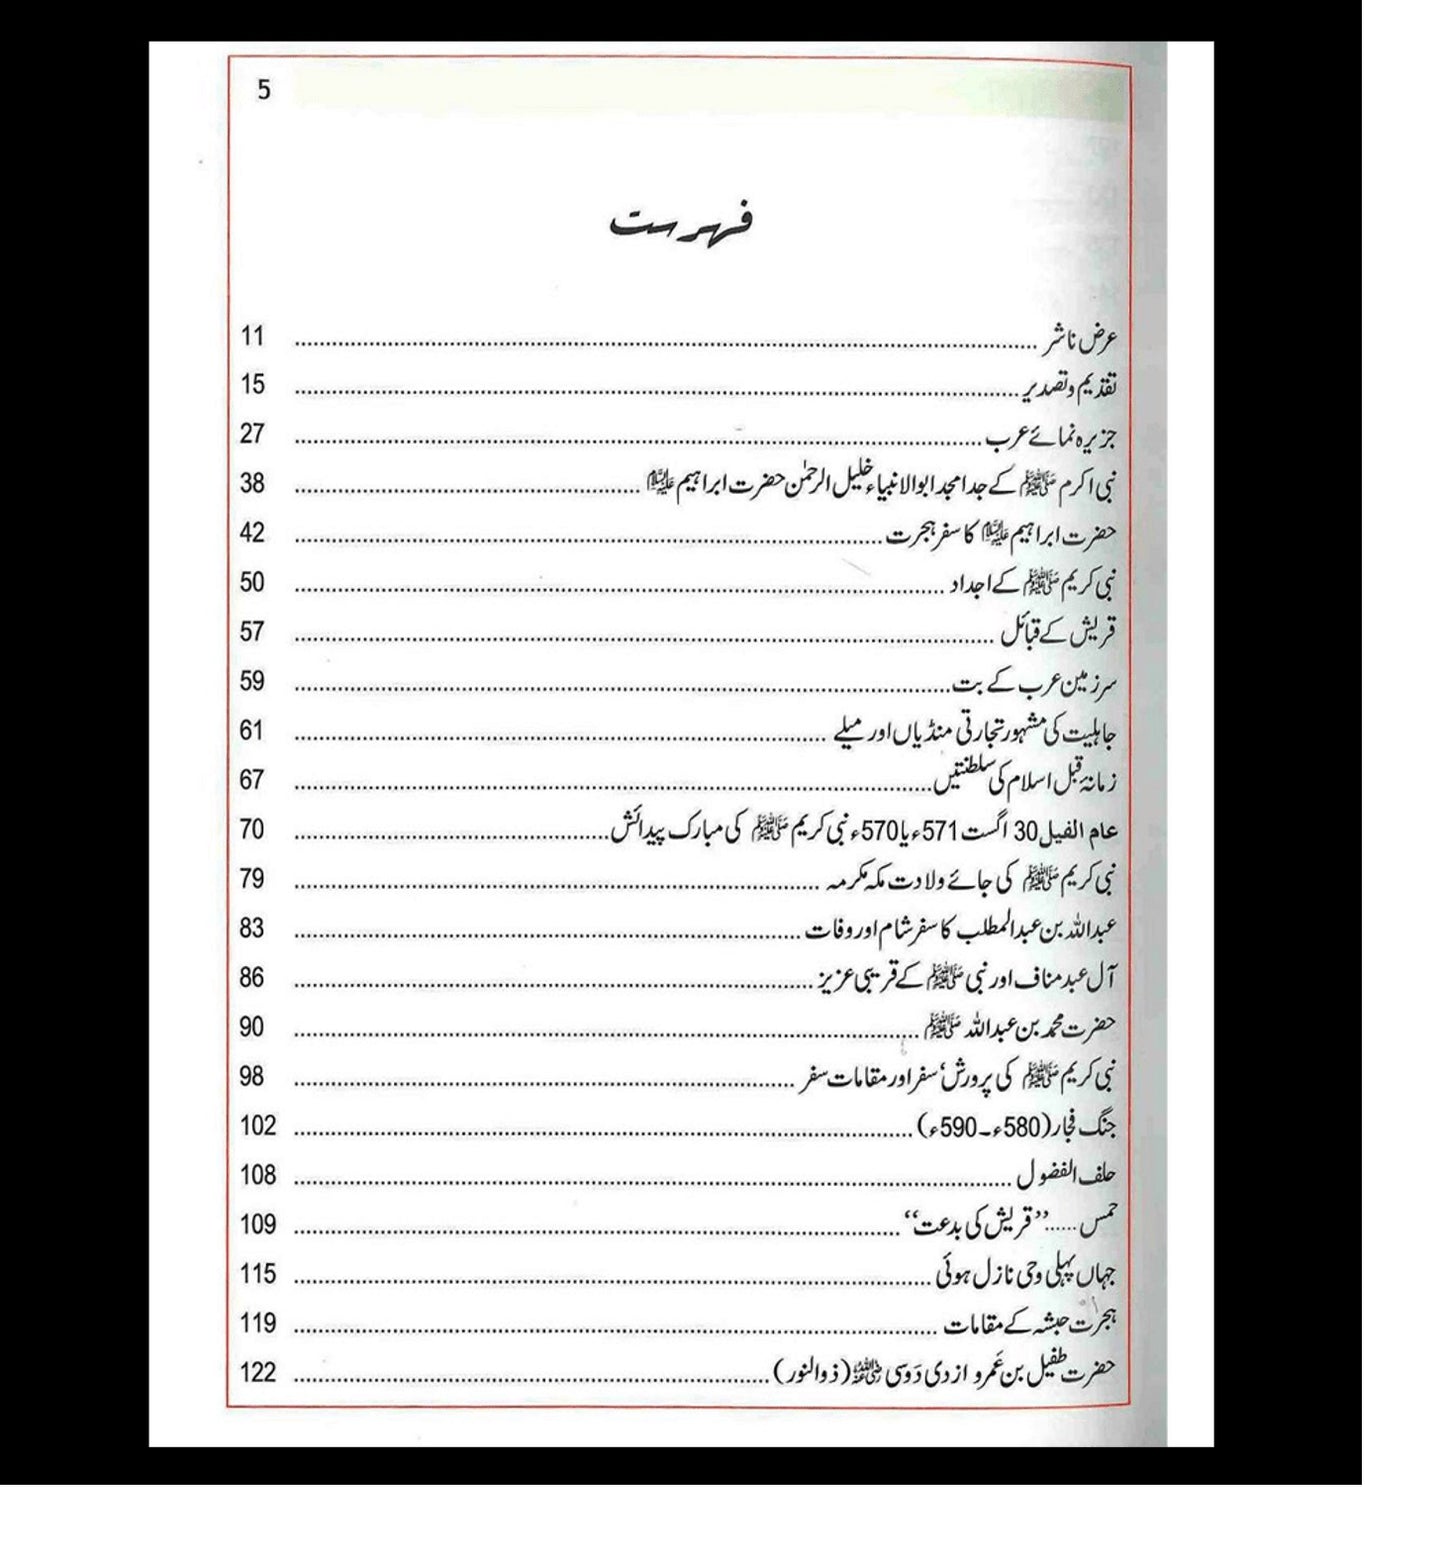 5
فہرست
عرض ناشر ........ 11
تقدیم و تصدیر ........ 15
جزیرہ نمائے عرب ........ 27
نبی اکرم ﷺ کے جد امجد ابوالانبیاء خلیل الرحمٰن حضرت ابراہیم علیہ السلام ........ 38
حضرت ابراہیم علیہ السلام کا سفر ہجرت ........ 42
نبی کریم ﷺ کے اجداد ........ 50
قریش کے قبائل ........ 57
سرزمین عرب کے بت ........ 59
جاہلیت کی مشہور تجارتی منڈیاں اور میلے ........ 61
زمانۂ قبل اسلام کی سلطنتیں ........ 67
عام الفیل 30 اگست 571ء یا 570ء نبی کریم ﷺ کی مبارک پیدائش ........ 70
نبی کریم ﷺ کی جائے ولادت مکہ مکرمہ ........ 79
عبداللہ بن عبدالمطلب کا سفر شام اور وفات ........ 83
آل عبد مناف اور نبی ﷺ کے قریبی عزیز ........ 86
حضرت محمد بن عبداللہ ﷺ ........ 90
نبی کریم ﷺ کی پرورش، سفر اور مقامات سفر ........ 98
جنگ فجار (580ء۔590ء) ........ 102
حلف الفضول ........ 108
حمس ...... ’’قریش کی بدعت‘‘ ........ 109
جہاں پہلی وحی نازل ہوئی ........ 115
ہجرت حبشہ کے مقامات ........ 119
حضرت طفیل بن عَمرو ازدی دَوسی رضی اللہ عنہ (ذوالنور) ........ 122